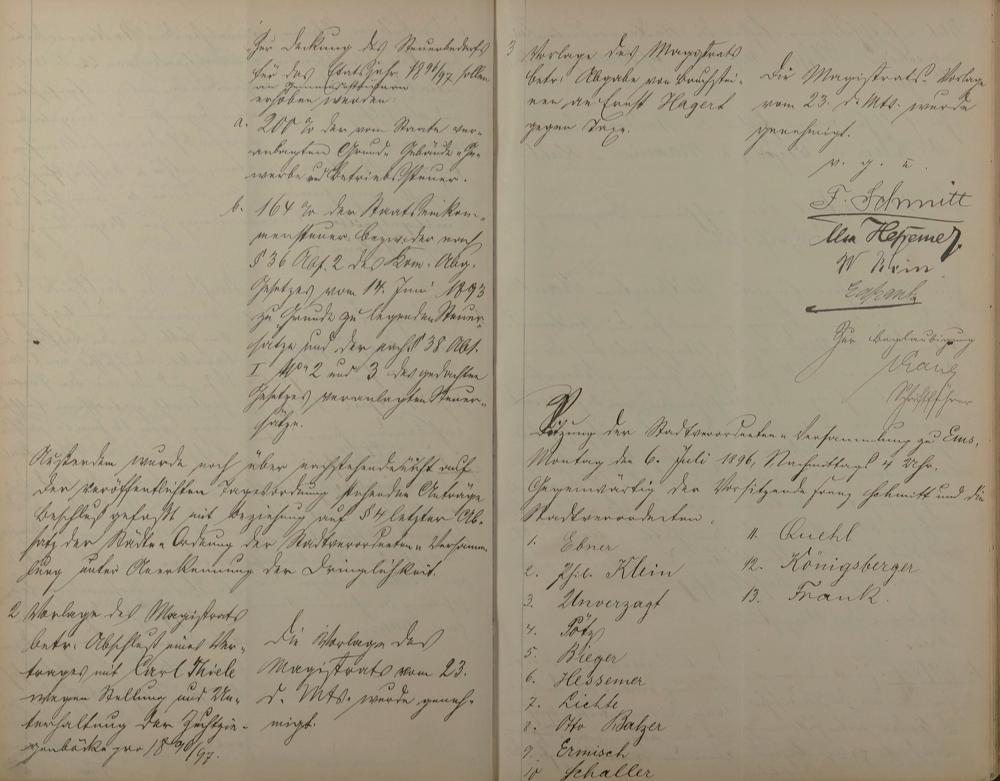 Zur Deckung des Steuerbedarfs
für das Etatsjahr 1896/97 sollen
an Gemeindesteuern
erhoben werden:
a. 200 % der vom Staate ver-
anlagten Grund- Gebäude- Ge-
werbe und Betriebssteuer.
b. 164 % der Staatseinkom-
mensteuer bezw. der nach
§ 36 Abs. 2 des Kom. Abg.
Gesetzes vom 14. Juni 1893
zu Grunde zu legenden Steuer-
sätze und der nach § 38 Abs.
I No 2 und 3 des gedachten
Gesetzes veranlagten Steuer-
sätze.
Außerdem wurde noch über nachstehende nicht auf
der veröffentlichten Tagesordnung stehenden Anträge
Beschluß gefaßt mit Beziehung auf § 4 letzter Ab-
satz der Städte-Ordnung der Stadtverordneten-Versamm-
lung unter Anerkennung der Dringlichkeit.
2 Vorlage des Magistrats
betr. Abschluß eines Ver-
trages mit Carl Thiele
wegen Stellung und Un-
terhaltung der Zuchtzie-
genböcke pro 1896/97.
Die Vorlage des
Magistrats vom 23.
d. Mts. wurde geneh-
migt.
3 Vorlage des Magistrats
betr. Abgabe von Bruchstei-
nen an Ernst Hagert
gegen Taxe.
Die Magistrats-Vorlage
vom 23. d. Mts. wurde
genehmigt.
v. g. u.
F. Schmitt
Hessemer
W Klein
Zur Beglaubigung
Schriftführer
Sitzung der Stadtverordneten-Versammlung zu Ems,
Montag den 6. Juli 1896, Nachmittags 4 Uhr.
Gegenwärtig der Vorsitzende Franz Schmitt und die
Stadtverordneten.
1. Ebner
2. Phil. Klein
3. Unverzagt
4. Pötz
5. Bieger
6. Hessemer
7. Lichte
8. Otto Balzer
9. Ermisch
10 Schaller
11. Quehl
12. Königsberger
13. Frank.